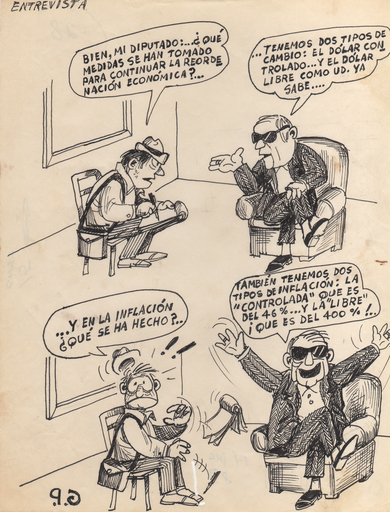 ENTREVISTA
BIEN, MI DIPUTADO:...¿QUÉ
MEDIDAS SE HAN TOMADO
PARA CONTINUAR LA REORDE
NACIÓN ECONÓMICA?...
...TENEMOS DOS TIPOS DE
CAMBIO: EL DÓLAR CON
TROLADO...Y EL DÓLAR
LIBRE COMO UD. YA
SABE....
...Y EN LA INFLACIÓN
¿QUÉ SE HA HECHO?..
!!
TAMBIÉN TENEMOS DOS
TIPOS DE INFLACIÓN: LA
"CONTROLADA" QUE ES
DEL 46%...Y LA "LIBRE"
¡QUE ES DEL 400%!..
G.P.